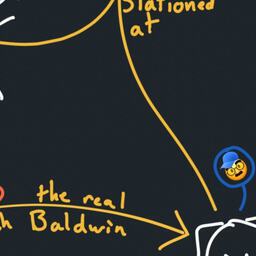 Stationed
at
the real
Baldwin